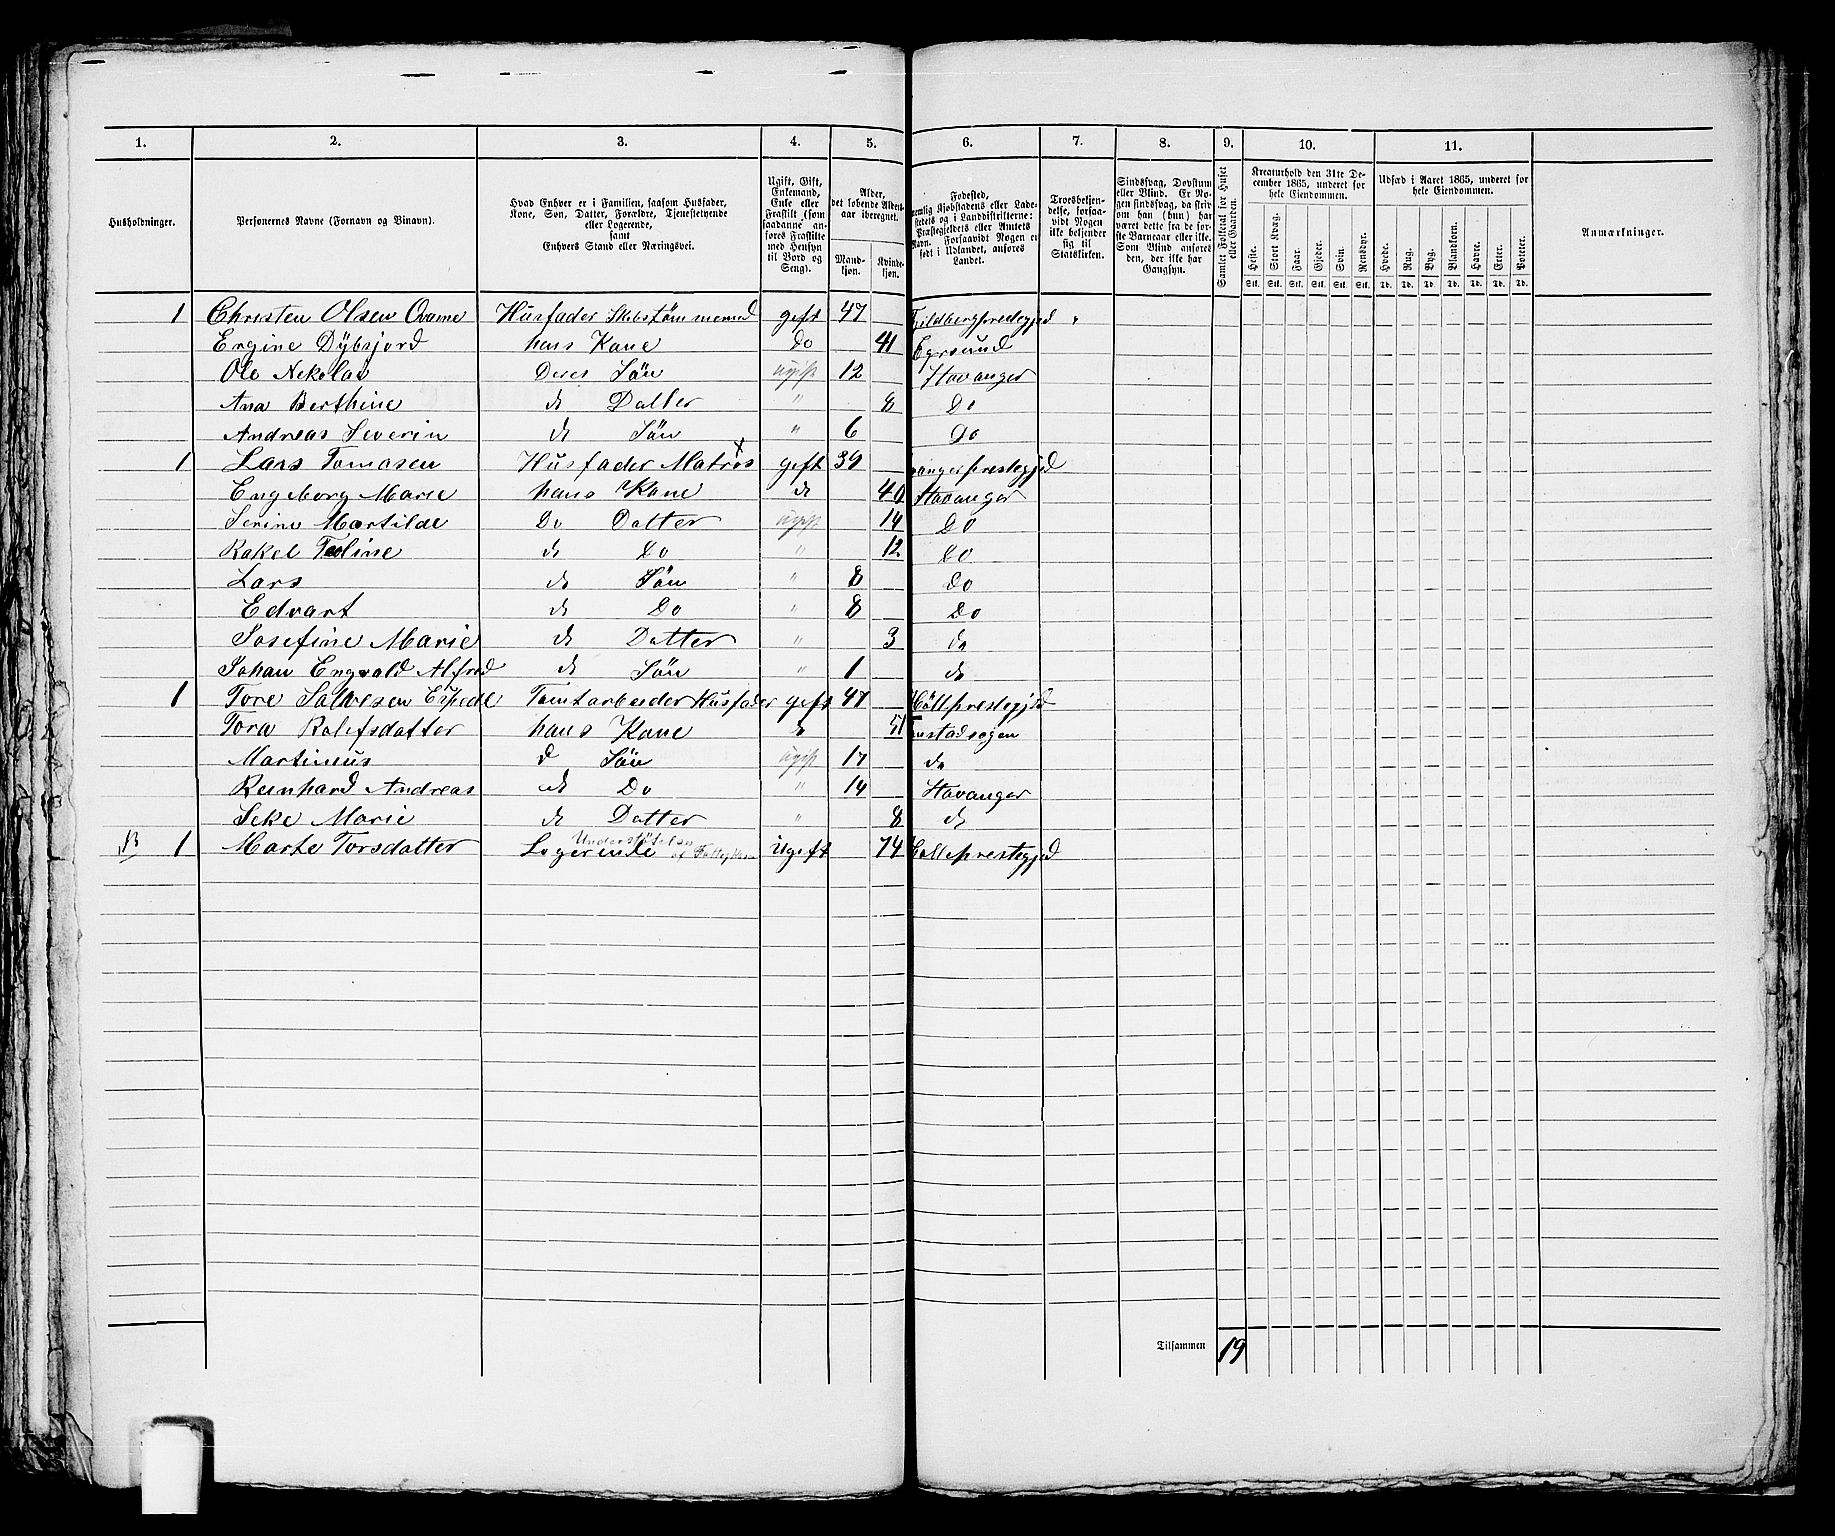 1. 2. 3. 4. 5. 6. 7. 8. 9. 10. 11.
Husholdninger.
Personernes Navne (Fornavn og Binavn).
Hvad Enhver er i Familien, saasom Husfader,
Kone, Søn, Datter, Forældre, Tjenestetyende
eller Logerende,
samt
Enhvers Stand eller Næringsvei.
Ugift, Gift,
Enkemand,
Enke eller
Fraskilt (som
saadanne anføres
Fraskilte
med Hensyn
til Bord og
Seng).
Alder,
det løbende Aldersaar
iberegnet.
Mandkjøn.
Kvindekjøn.
Fødested,
Kjøbstadens eller Ladestedets
og i Landdistrikterne:
Præstegjeldets eller Amtets
Navn. Forsaavidt Nogen er
født i Udlandet, anføres
Landet.
Troesbekjendelse,
forsaavidt
Nogen
ikke bekjender
sig til
Statskirken.
Sindssvag, Døvstum
eller Blind. Er Nogen
sindssvag, da skrives
om han (hun) har
været dette fra de første
Barneaar eller ikke.
Som Blind anføres
den, der ikke har
Gangsyn.
Samlet Folketal for Huset
eller Gaarden.
Kreaturhold den 31te December
1865, underet for
hele Eiendommen.
Heste. Stort Kvæg. Faar. Gjeder. Svin. Rensdyr.
Stk. Stk. Stk. Stk. Stk. Stk.
Udsæd i Aaret 1865, underet for
hele Eiendommen.
Hvede. Rug. Byg. Blandkorn. Havre. Erter. Poteter.
Td. Td. Td. Td. Td. Td. Td.
Anmærkninger.
1 Christen Olsen Qvame Husfader Skibstømmermd gift 47
Ergine Dybsjord hans Kone Do 41 Egersund
Ole Nekolai Deres Søn ugift 12 Stavanger
Ana Berthine do Datter " 8 Do
Andreas Severin do Søn " 6 Do
1 Lars Tomasen Husfader Matros gift 39 vangerprestegjed
Engeborg Marie hans Kone do 40 Stavanger
Serine Martilde Do Datter ugift 14 Do
Rakel Toline do Do " 12 Do
Lars do Søn " 8 Do
Edvart do Do " 8 Do
Josefine Marie do Datter " 3 do
Johan Engvald Alfred do Søn " 1 do
1 Tore Salvesen Espedl Tomtarbeider Husfader gift 47
Tora Rolefsdatter hans Kone do 51
Martinius d Søn ugift 17 do
Reinhard Andreas do Do " 14 Stavanger
Seke Marie do Datter " 8 do
B 1 Marte Torsdatter Logerende Understøttelse af Ugift 74
Tilsammen 19